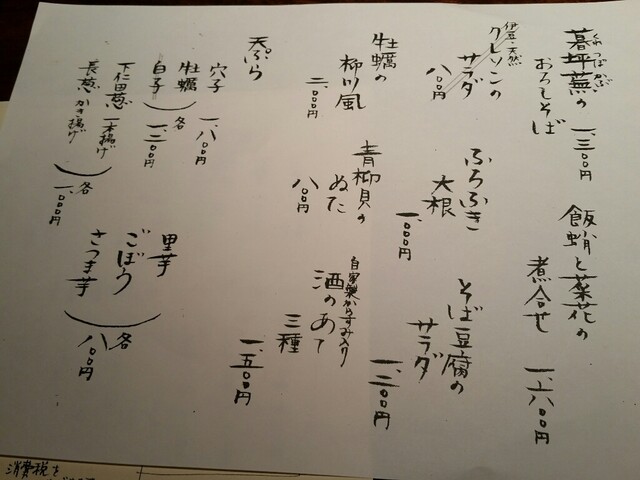 くれつぼかぶ
暮坪蕪の
おろしそば
一、三〇〇円
飯蛸と菜花の
煮合せ
一、六〇〇円
伊豆・天然
クレソンの
サラダ
八〇〇円
ふろふき
大根
一、〇〇〇円
そば豆腐の
サラダ
一、二〇〇円
牡蠣の
柳川風
二、〇〇〇円
青柳貝の
ぬた
八〇〇円
自家製からすみ入り
酒のあて
三種
一、五〇〇円
天ぷら
穴子
一、八〇〇円
牡蠣
白子
各
一、三〇〇円
下仁田葱 一本揚げ
長葱 かき揚げ
各
一、〇〇〇円
里芋
ごぼう
さつま芋
各
八〇〇円
消費税を